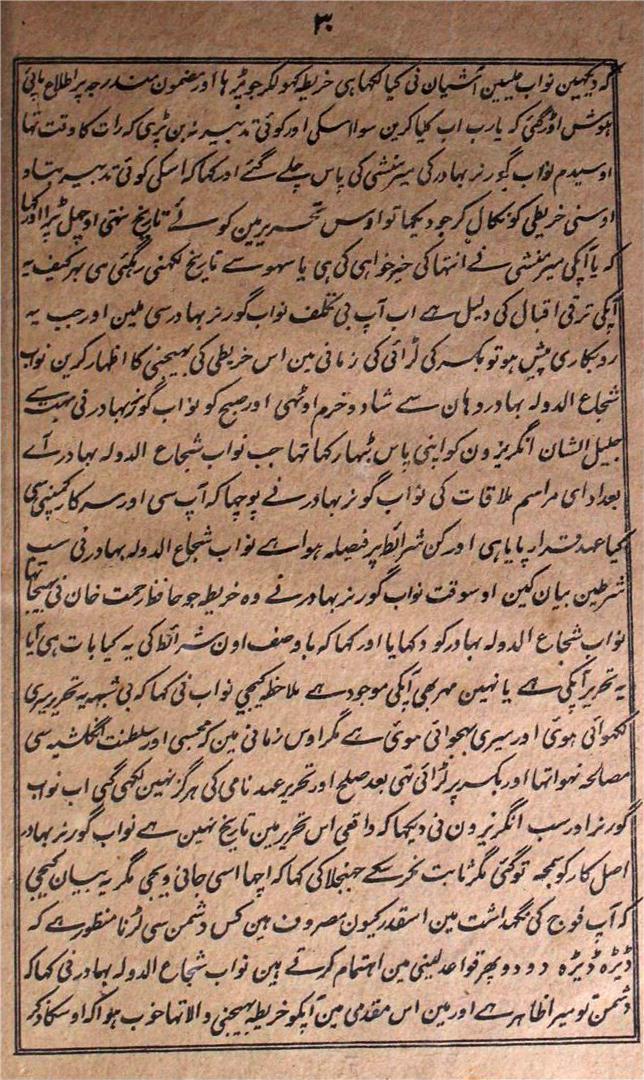 ۳
کہ دیکھین نواب علیین آشیان نی کیا لکھا ہی خریطہ کھولکر جو پڑہا اور مضمون مندرجہ پر اطلاع پائی
ہوش اوڑ گئی کہ یارب اب کیا کرین سوا اسکی اور کوئی تدبیر نہ بن پڑی کہ رات کا وقت تہا
اوسیدم نواب گورنر بہادر کی میر منشی کی پاس چلے گئے اور کہا کہ اسکی کوئی تدبیر بتاو
اوسنی خریطی کو نکال کر جو دیکہا تو اوس تحریر مین کوئے تاریخ نتہی اوچہل پڑا اور کہا
کہ یا آپکی میر منشی نے انتہا کی خیر خواہی کی ہی یا سہو سے تاریخ لکہنی رہگئی ہی بہر کیف یہ
آپکی ترقی اقبال کی دلیل ہے اب آپ بی تکلف نواب گورنر بہادر سی ملین اور جب یہ
روبکاری پیش ہو تو بکسر کی لڑائی کی زمانی مین اس خریطی کی بہیجنی کا اظہار کرین نواب
شجاع الدولہ بہادر وہان سے شاد و خرم اوٹہی اور صبح کو نواب گورنر بہادر نی بہت سے
جلیل الشان انگریزون کو اپنی پاس بٹہا رکہا تہا جب نواب شجاع الدولہ بہادر آے
بعد ادای مراسم ملاقات کی نواب گورنر بہادر نے پوچہا کہ آپ سی اور سرکار کمپنی سی
کیا عہد قرار پایا ہی اور کن شرائط پر فیصلہ ہوا ہے نواب شجاع الدولہ بہادر نی سب
شرطین بیان کین اوسوقت نواب گورنر بہادر نے وہ خریطہ جو حافظ رحمت خان نی بہیجا تہا
نواب شجاع الدولہ بہادر کو دکہایا اور کہا کہ باوصف اون شرائط کی یہ کیا بات ہی آیا
یہ تحریر آپکی ہے یا نہین مہر بہی آپکی موجود ہے ملاحظہ کیجی نواب نی کہا کہ بی شبہہ یہ تحریر میری
لکہوائی ہوئی اور میری بہجوائی ہوئی ہے مگر اوس زمانی مین کہ مجہسی اور سلطنت انگلشیہ سی
مصالحہ نہوا تہا اور بکسر پر لڑائی تہی بعد صلح اور تحریر عہد نامی کی ہرگز نہین لکہی گئی اب نواب
گورنر اور سب انگریزون نی دیکہا کہ واقعی اس تحریر مین تاریخ نہین ہے نواب گورنر بہادر
اصل کار کو سمجہ تو گئی مگر ثابت نکر سکے جہنجلا کی کہا کہ اچہا اسی جانی دیجی مگر یہ بیان کیجی
کہ آپ فوج کی نگہداشت مین اسقدر کیون مصروف ہین کس دشمن سی لڑنا منظور ہے کہ
ڈیڑہ ڈیڑہ دو دو پہر قواعد لینی مین اہتمام کرتے ہین نواب شجاع الدولہ بہادر نی کہا کہ
دشمن تو میرا ظاہر ہے اور مین اس مقدمی مین آپکو خریطہ بہیجنی والا تہا خوب ہوا کہ اوسکا ذکر